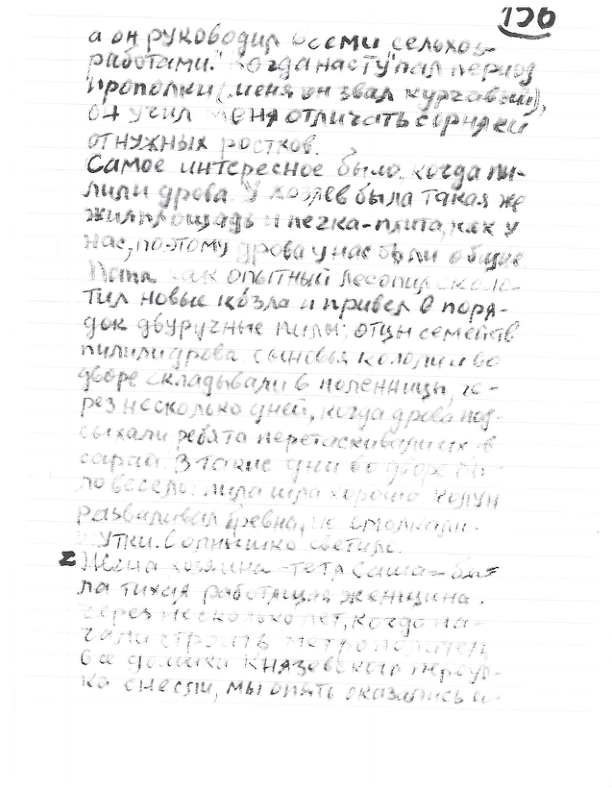 120
а он руководил всеми „сельхоз-
работами." Когда наступал период
прополки (меня он звал курчавый),
он учил меня отличать сорняки
от нужных ростков.
Самое интересное было когда пи-
лили дрова. У хозяев была такая же
жилплощадь и печка-плита, как у
нас, поэтому дрова у нас были общие
Папа как опытный лесопил сколо-
тил новые козла и привел в поря-
док двуручные пилы: отцы семейств
пилили дрова сыновья кололи и во
дворе складывали в поленницы, че-
рез несколько дней, когда дрова под-
сыхали ребята перетаскивали их в
сарай. В такие дни во дворе бы-
ло весело: пила шла хорошо колун
разваливал бревна, не смолкали
шутки. Солнышко светило.
Жена хозяина - тетя Саша - бы-
ла тихая работящая женщина.
Через несколько лет, когда на-
чали строить метрополитен,
все домики Князевского переул-
ка снесли, мы опять оказались